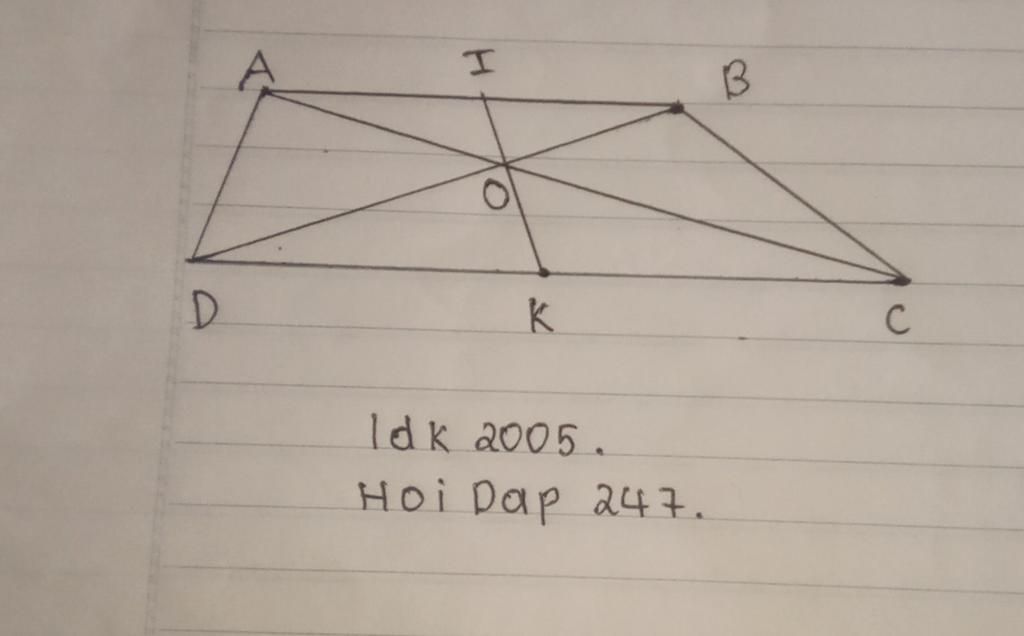 A I B
O
D K C
Idk 2005.
Hoi Dap 247.